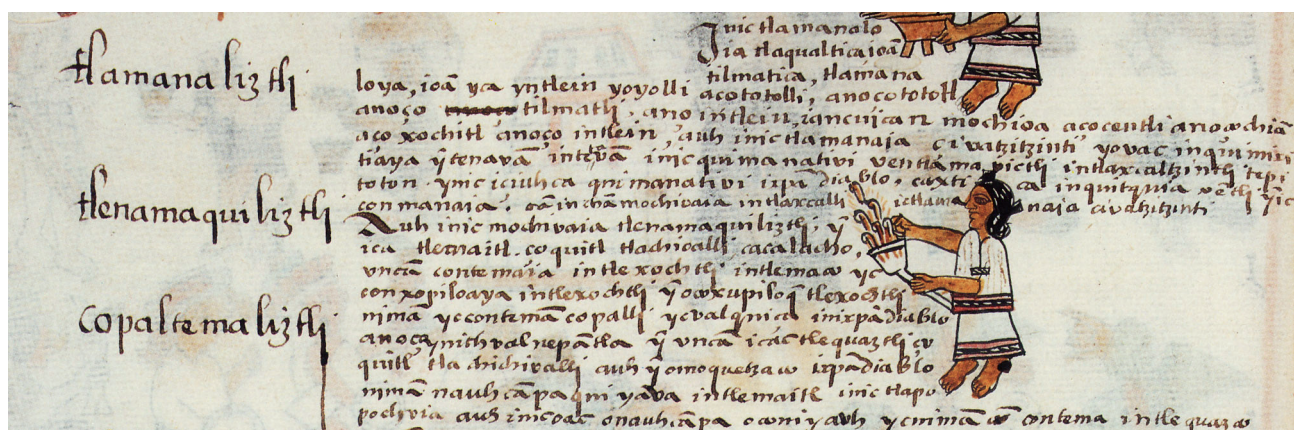 tlamanaliztli
tlenamaquiliztli
copaltemaliztli
Jnic tlamanalo
ia tlaqualtica ioã
tilmatica, tlamana
loya, ioã yca yntlein yoyolli aço totolli, anoço tototl
anoço tilmatli, ano intlein, iancuican mochioa aço centli anoço chiã
aço xochitl anoço intlein, auh inic tlamanaia civatzitzinti yovac inquimixi
tiaya ỹtenavã inic quimanativi ventlamapictli intlaxcaltzintli tepi
toton. ynic iciuhca quimanativi ixpã diablo, caxti ca inquitquia vẽtli ỹic
conmanaia. çã inchã mochivaia intlaxcalli ic tlama naia civatzitzinti
Auh inic mochivaia tlenamaquiliztli, ỹ
ica tlemaitl. çoquitl tlachivalli cacalacho,
vncã contemaia intlexochtli intlemaco yc
conxopiloaya intlexochtli ỹ ocoxupiloq̃ tlexochtli
nimã yc contemã copalli yc valquiça inixpã diablo
anoço ynithvalnepãtla ỹ vncã icac tlequaztli ço
quitl tlachichivalli auh ỹ omoquetzaco ixpã diablo
nimã nauhcãpa qui yava intlemaitl inic tlapo
pochvia auh inicoac onauhcãpa oconiyauh yc nimã contema intlequazco